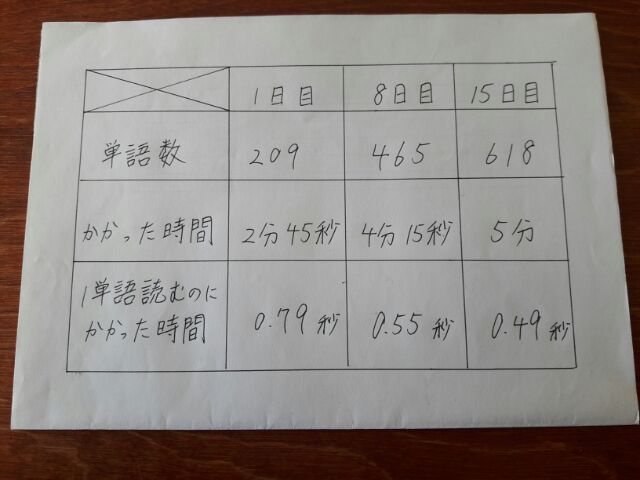 1日目 8日目 15日目
単語数 209 465 618
かかった時間 2分45秒 4分15秒 5分
1単語読むのに
かかった時間 0.79秒 0.55秒 0.49秒